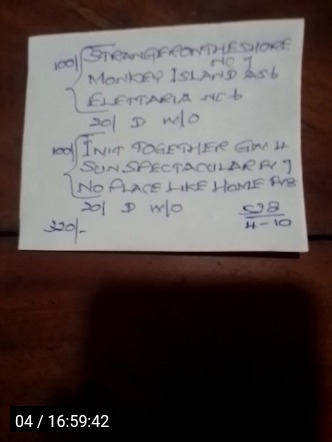 100/ STRANGER ON THE SHORE
NC 7
MONKEY ISLAND ASC 6
ELETTARIA NC 6
20/ D W/O
100/ INIT TOGETHER GW 4
SUN SPECTACULAR FV 7
NO PLACE LIKE HOME FV8
20/ D W/O
320/-
528
4-10
04 / 16:59:42